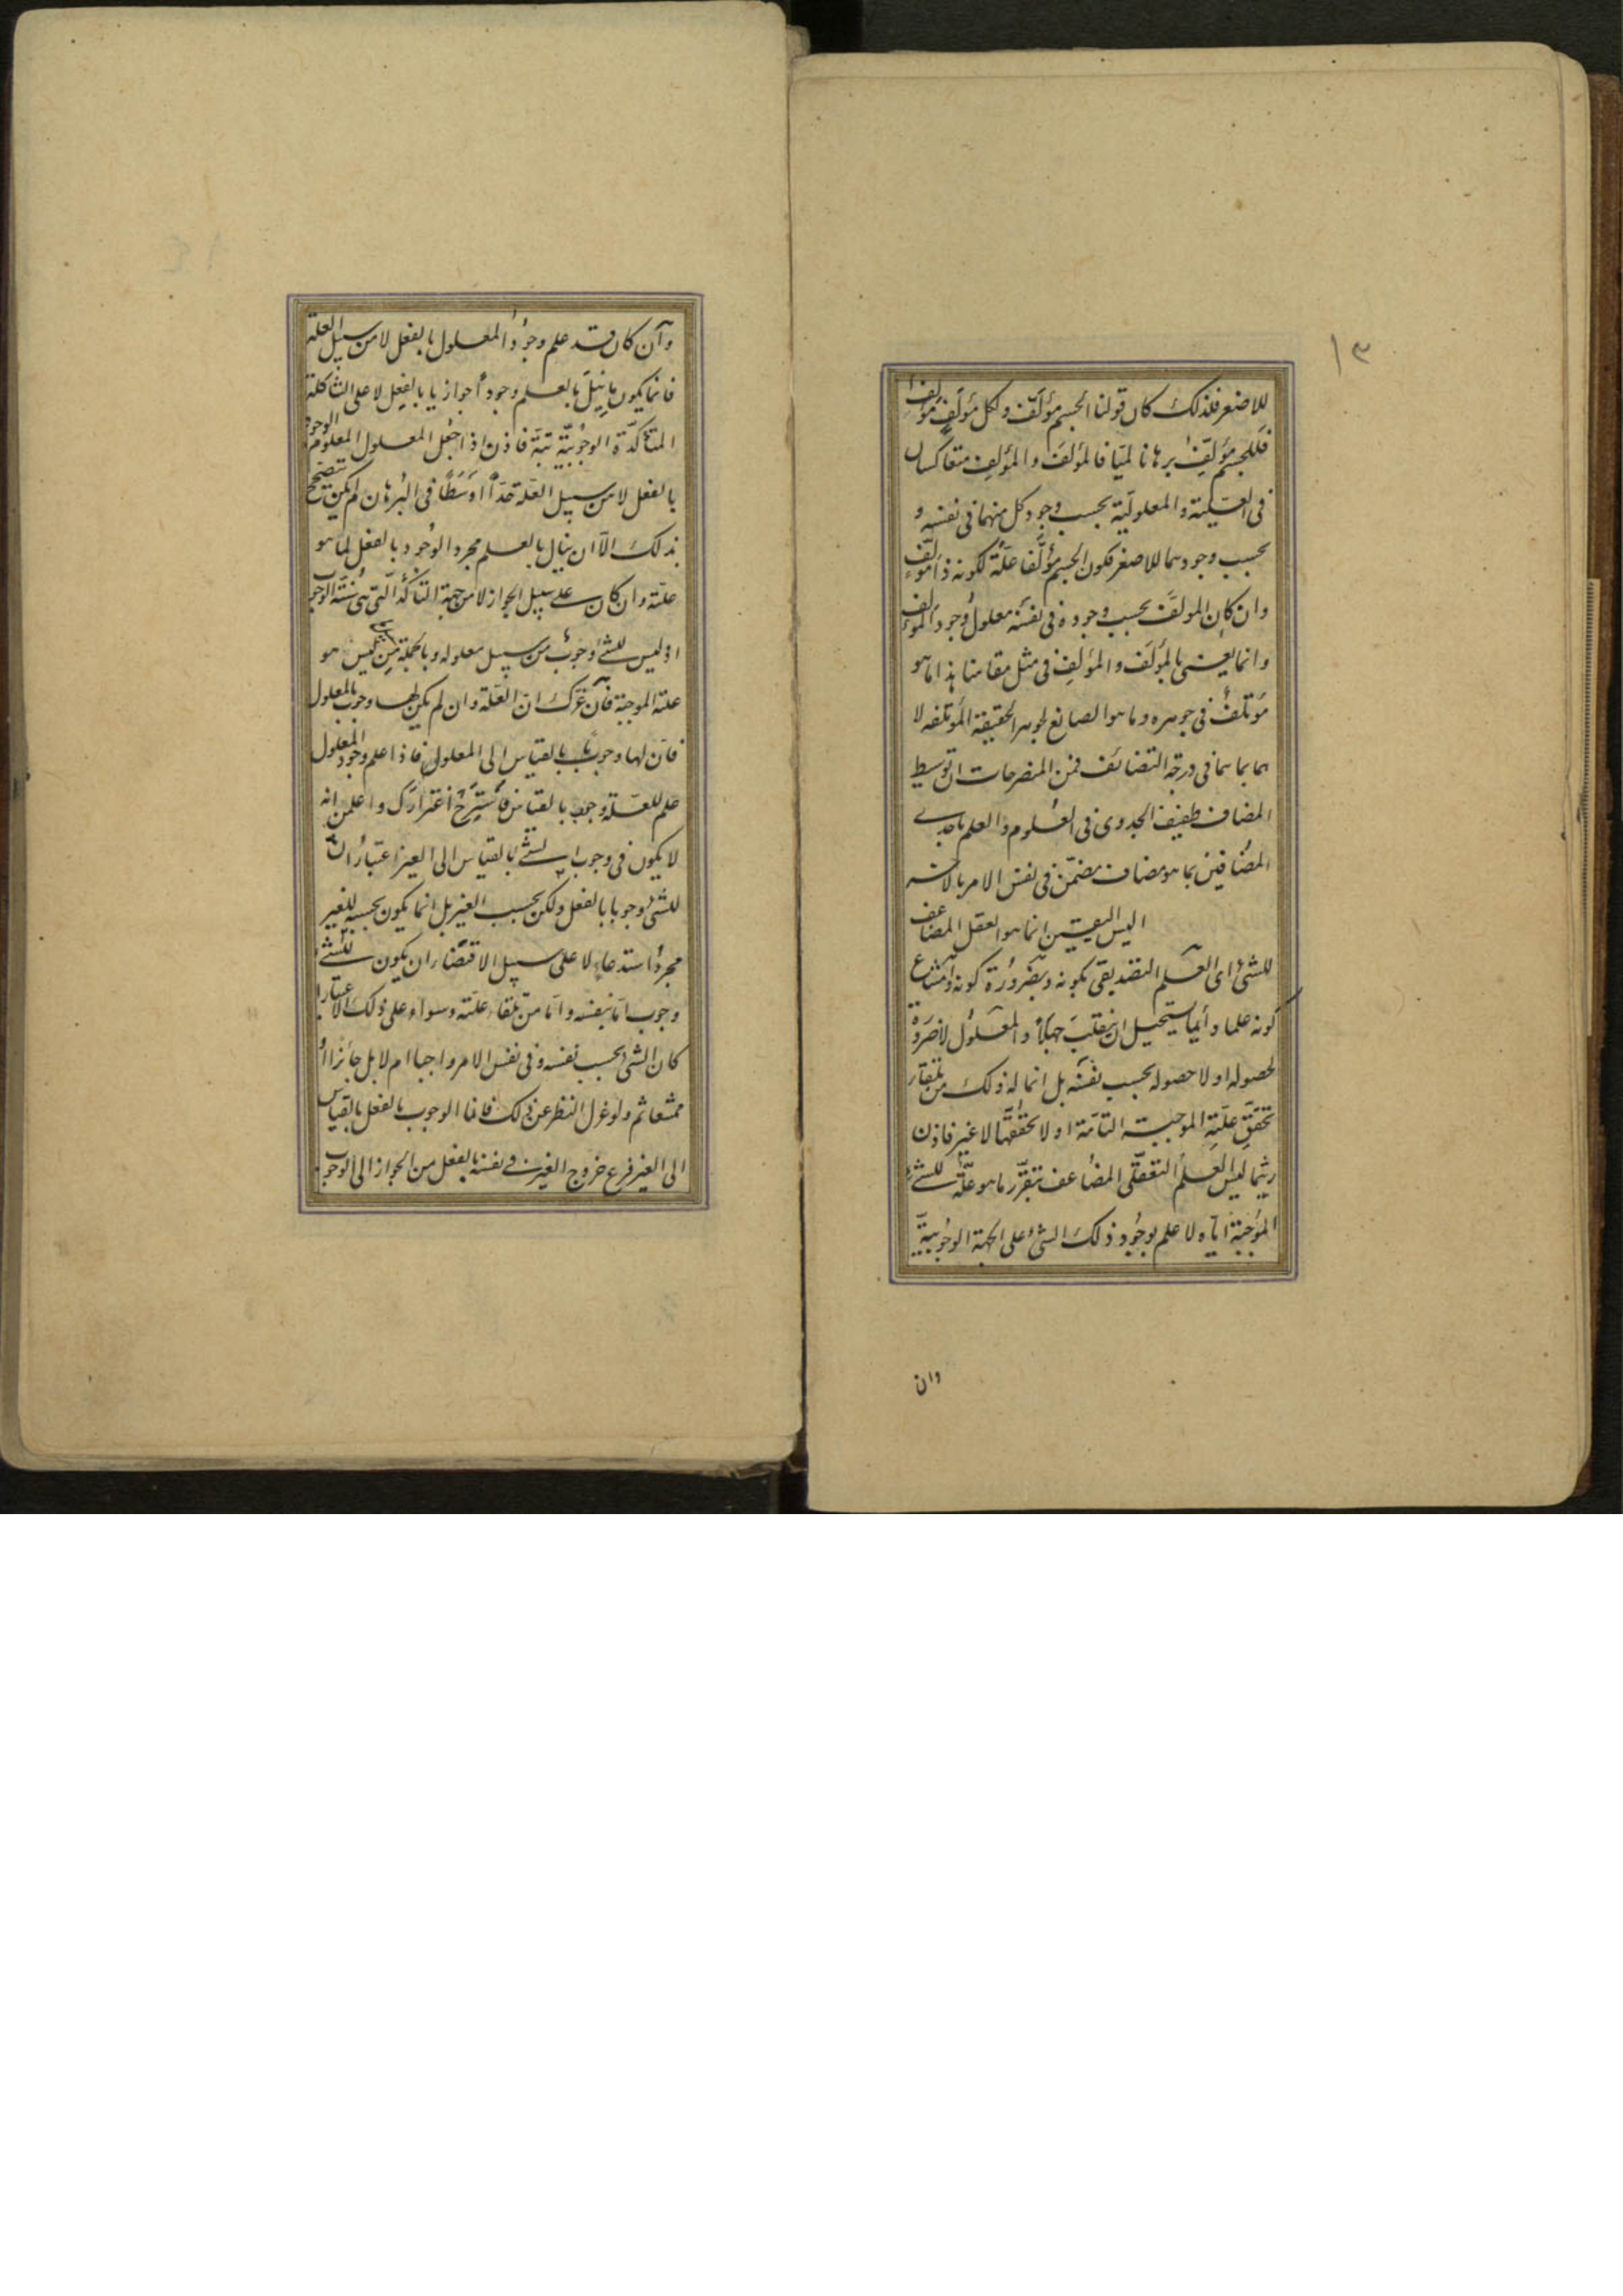 ١٣
للاصغر فلذلك كان قولنا الجسم مؤلَّف ولكل مؤلَّف مؤلِّف
فللجسم مؤلِّف برهانا لميّا فالمؤلَّف والمؤلِّف متعاكسان
فى العلّية والمعلوليّة بحسب وجود كل منهما فى نفسه و
بحسب وجودهما للاصغر فكون الجسم مؤلَّفا علّة لكونه ذا مؤلِّف
وان كان المولَّف بحسب وجوده فى نفسه معلول وجود المؤلِّف
وانما يعنى بالمؤلَّف والمؤلِّف فى مثل مقامنا هذا ما هو
مؤتلف فى جوهره وما هو الصانع لجوهر الحقيقة المؤتلفه لا
هما بما هما فى درجة التضائف فمن المنصرحات ان توسيط
المضاف طفيف الجدوى فى العلوم والعلم باحدى
المضافين بما هو مضاف مضمّن فى نفس الامر بالآخر
اليس اليقين انما هو العقل المضاعف
للشئ اى العلم التصديقى بكونه وبضرورة كونه وامتناع
كونه علما دائما يستحيل ان ينقلب جهلاً والمعلول لا ضرورة
لحصوله او لا حصوله بحسب نفسه بل انما له ذلك من تلقاء
تحقّق علّته الموجبة التامّة او لا تحققها لا غير فاذن
ريثما ليس العلم التعقّلى المضاعف بتقرّر ما هو علّة للشئ
الموجبة ايّاه لا علم بوجود ذلك الشئ على الجهة الوجوبيّة
وان
وان كان قد علم وجود المعلول بالفعل لا من سبيل العلة
فانما يكون ما نيل بالعلم وجودا جوازيا بالفعل لا على الشاكلة
المتأكّدة الوجوبيّة بتّة فاذن اذا جعل المعلول المعلوم الوجود
بالفعل لا من سبيل العلّة حدّاً اوسطاً فى البرهان لم يكن يتصحّح
بذلك الّا ان ينال بالعلم مجرد الوجود بالفعل لما هو
علته وان كان على سبيل الجواز لا من جهة التأكّد الّتى هى سنّة الوجوب
اذ ليس للشئ وجوب من سبيل معلوله وبالجملة من ليس هو
علته الموجبة فان غرّك ان العلّة وان لم يكن لها وجوب بالمعلول
فان لها وجوب بالقياس الى المعلول فاذا علم وجود المعلول
علم للعلّة وجوب بالقياس فاستزح اغترارك واعلمن انه
لا يكون فى وجوب الشئ بالقياس الى الغير اعتبار ان
للشئ وجوبا بالفعل ولكن بحسب الغير بل انما يكون بحسبه للغير
مجرد استدعاء لا على سبيل الاقتضاء ان يكون للشئ
وجوب امّا بنفسه وامّا من تلقاء علّته وسواء على ذلك الاعتبار
كان الشئ بحسب نفسه وفى نفس الامر واجبا ام لا بل جائزا او
ممتنعا ثم ولو عزل النظر عن ذلك فانما الوجوب بالفعل بالقياس
الى الغير فرع خروج الغير فى نفسه بالفعل من الجواز الى الوجوب